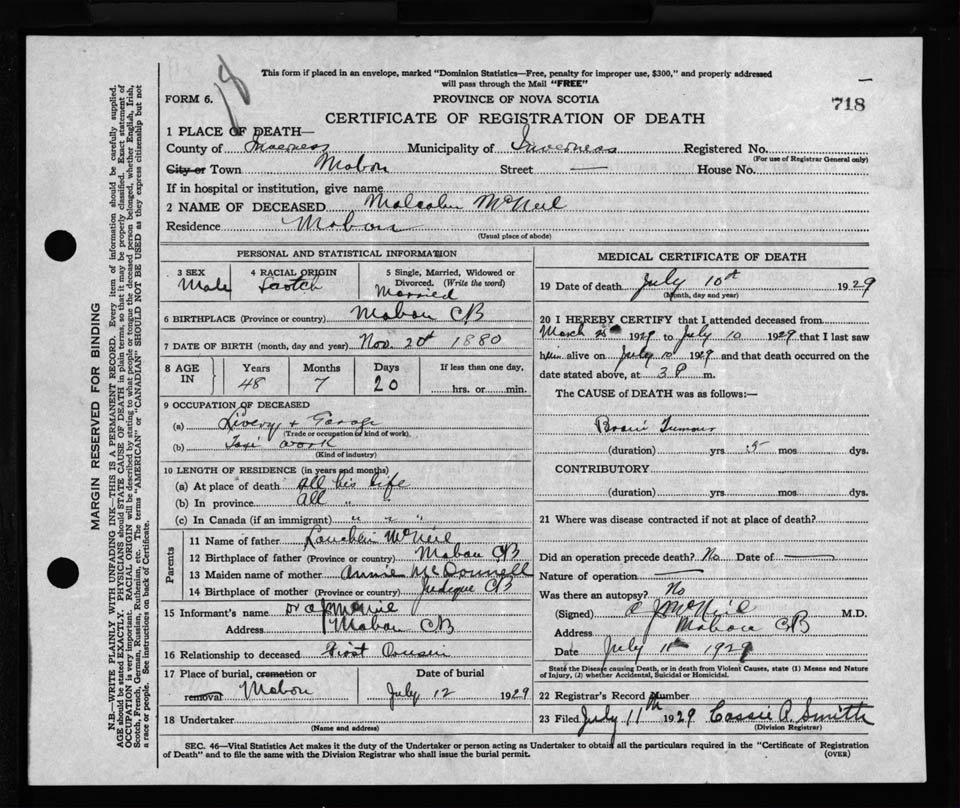 18
This form if placed in an envelope, marked "Dominion Statistics—Free, penalty for improper use, $300," and properly addressed
will pass through the Mail "FREE"
FORM 6. PROVINCE OF NOVA SCOTIA 718
CERTIFICATE OF REGISTRATION OF DEATH
1 PLACE OF DEATH—
County of Inverness Municipality of Inverness Registered No.
(For use of Registrar General only)
City or Town Mabou Street — House No.
If in hospital or institution, give name
2 NAME OF DECEASED Malcolm McNeil
Residence Mabou
(Usual place of abode)
PERSONAL AND STATISTICAL INFORMATION
3 SEX 4 RACIAL ORIGIN 5 Single, Married, Widowed or
Divorced. (Write the word)
Male Scotch Married
6 BIRTHPLACE (Province or country) Mabou CB
7 DATE OF BIRTH (month, day and year) Nov. 20th 1880
8 AGE IN Years Months Days If less than one day,
48 7 20 hrs. or min.
9 OCCUPATION OF DECEASED
(a) Livery & Garage
(Trade or occupation or kind of work)
(b) Taxi work
(Kind of industry)
10 LENGTH OF RESIDENCE (in years and months)
(a) At place of death all his life
(b) In province all "
(c) In Canada (if an immigrant) " " "
Parents
11 Name of father Lauchlin McNeil
12 Birthplace of father (Province or country) Mabou CB
13 Maiden name of mother Annie McDonnell
14 Birthplace of mother (Province or country) Judique CB
15 Informant's name Dr A J McNeil
Address Mabou CB
16 Relationship to deceased First Cousin
17 Place of burial, cremation or Date of burial
removal Mabou July 12 1929
18 Undertaker
(Name and address)
MEDICAL CERTIFICATE OF DEATH
19 Date of death July 10th 1929
(Month, day and year)
20 I HEREBY CERTIFY that I attended deceased from
March 1929 to July 10 1929 that I last saw
him alive on July 10 1929 and that death occurred on
date stated above, at 3 P m.
The CAUSE of DEATH was as follows:—
Brain Tumour
(duration) yrs 5 mos dys.
CONTRIBUTORY
(duration) yrs mos dys.
21 Where was disease contracted if not at place of death?
Did an operation precede death? No Date of —
Nature of operation —
Was there an autopsy? No
(Signed) A J McNeil M.D.
Address Mabou CB
Date July 11th 1929
State the Disease causing Death, or in death from Violent Causes, state (1) Means and Nature
of Injury, (2) whether Accidental, Suicidal or Homicidal.
22 Registrar's Record Number
23 Filed July 11th 1929 Cassie A. Smith
(Division Registrar)
SEC. 46—Vital Statistics Act makes it the duty of the Undertaker or person acting as Undertaker to obtain all the particulars required in the "Certificate of Registration
of Death" and to file the same with the Division Registrar who shall issue the burial permit. (OVER)
MARGIN RESERVED FOR BINDING
N.B.—WRITE PLAINLY WITH UNFADING INK—THIS IS A PERMANENT RECORD. Every item of information should be carefully supplied.
AGE should be stated EXACTLY. PHYSICIANS should STATE CAUSE OF DEATH in plain terms, so that it may be properly classified. Exact statement of
OCCUPATION is very important. RACIAL ORIGIN will be described by stating to what people or tongue the deceased person belonged, whether English, Irish,
Scotch, French, German, Russian, Ruthenian, etc. The terms "AMERICAN" or "CANADIAN" SHOULD NOT BE USED as they express citizenship but not
a race or people. See instructions on back of Certificate.